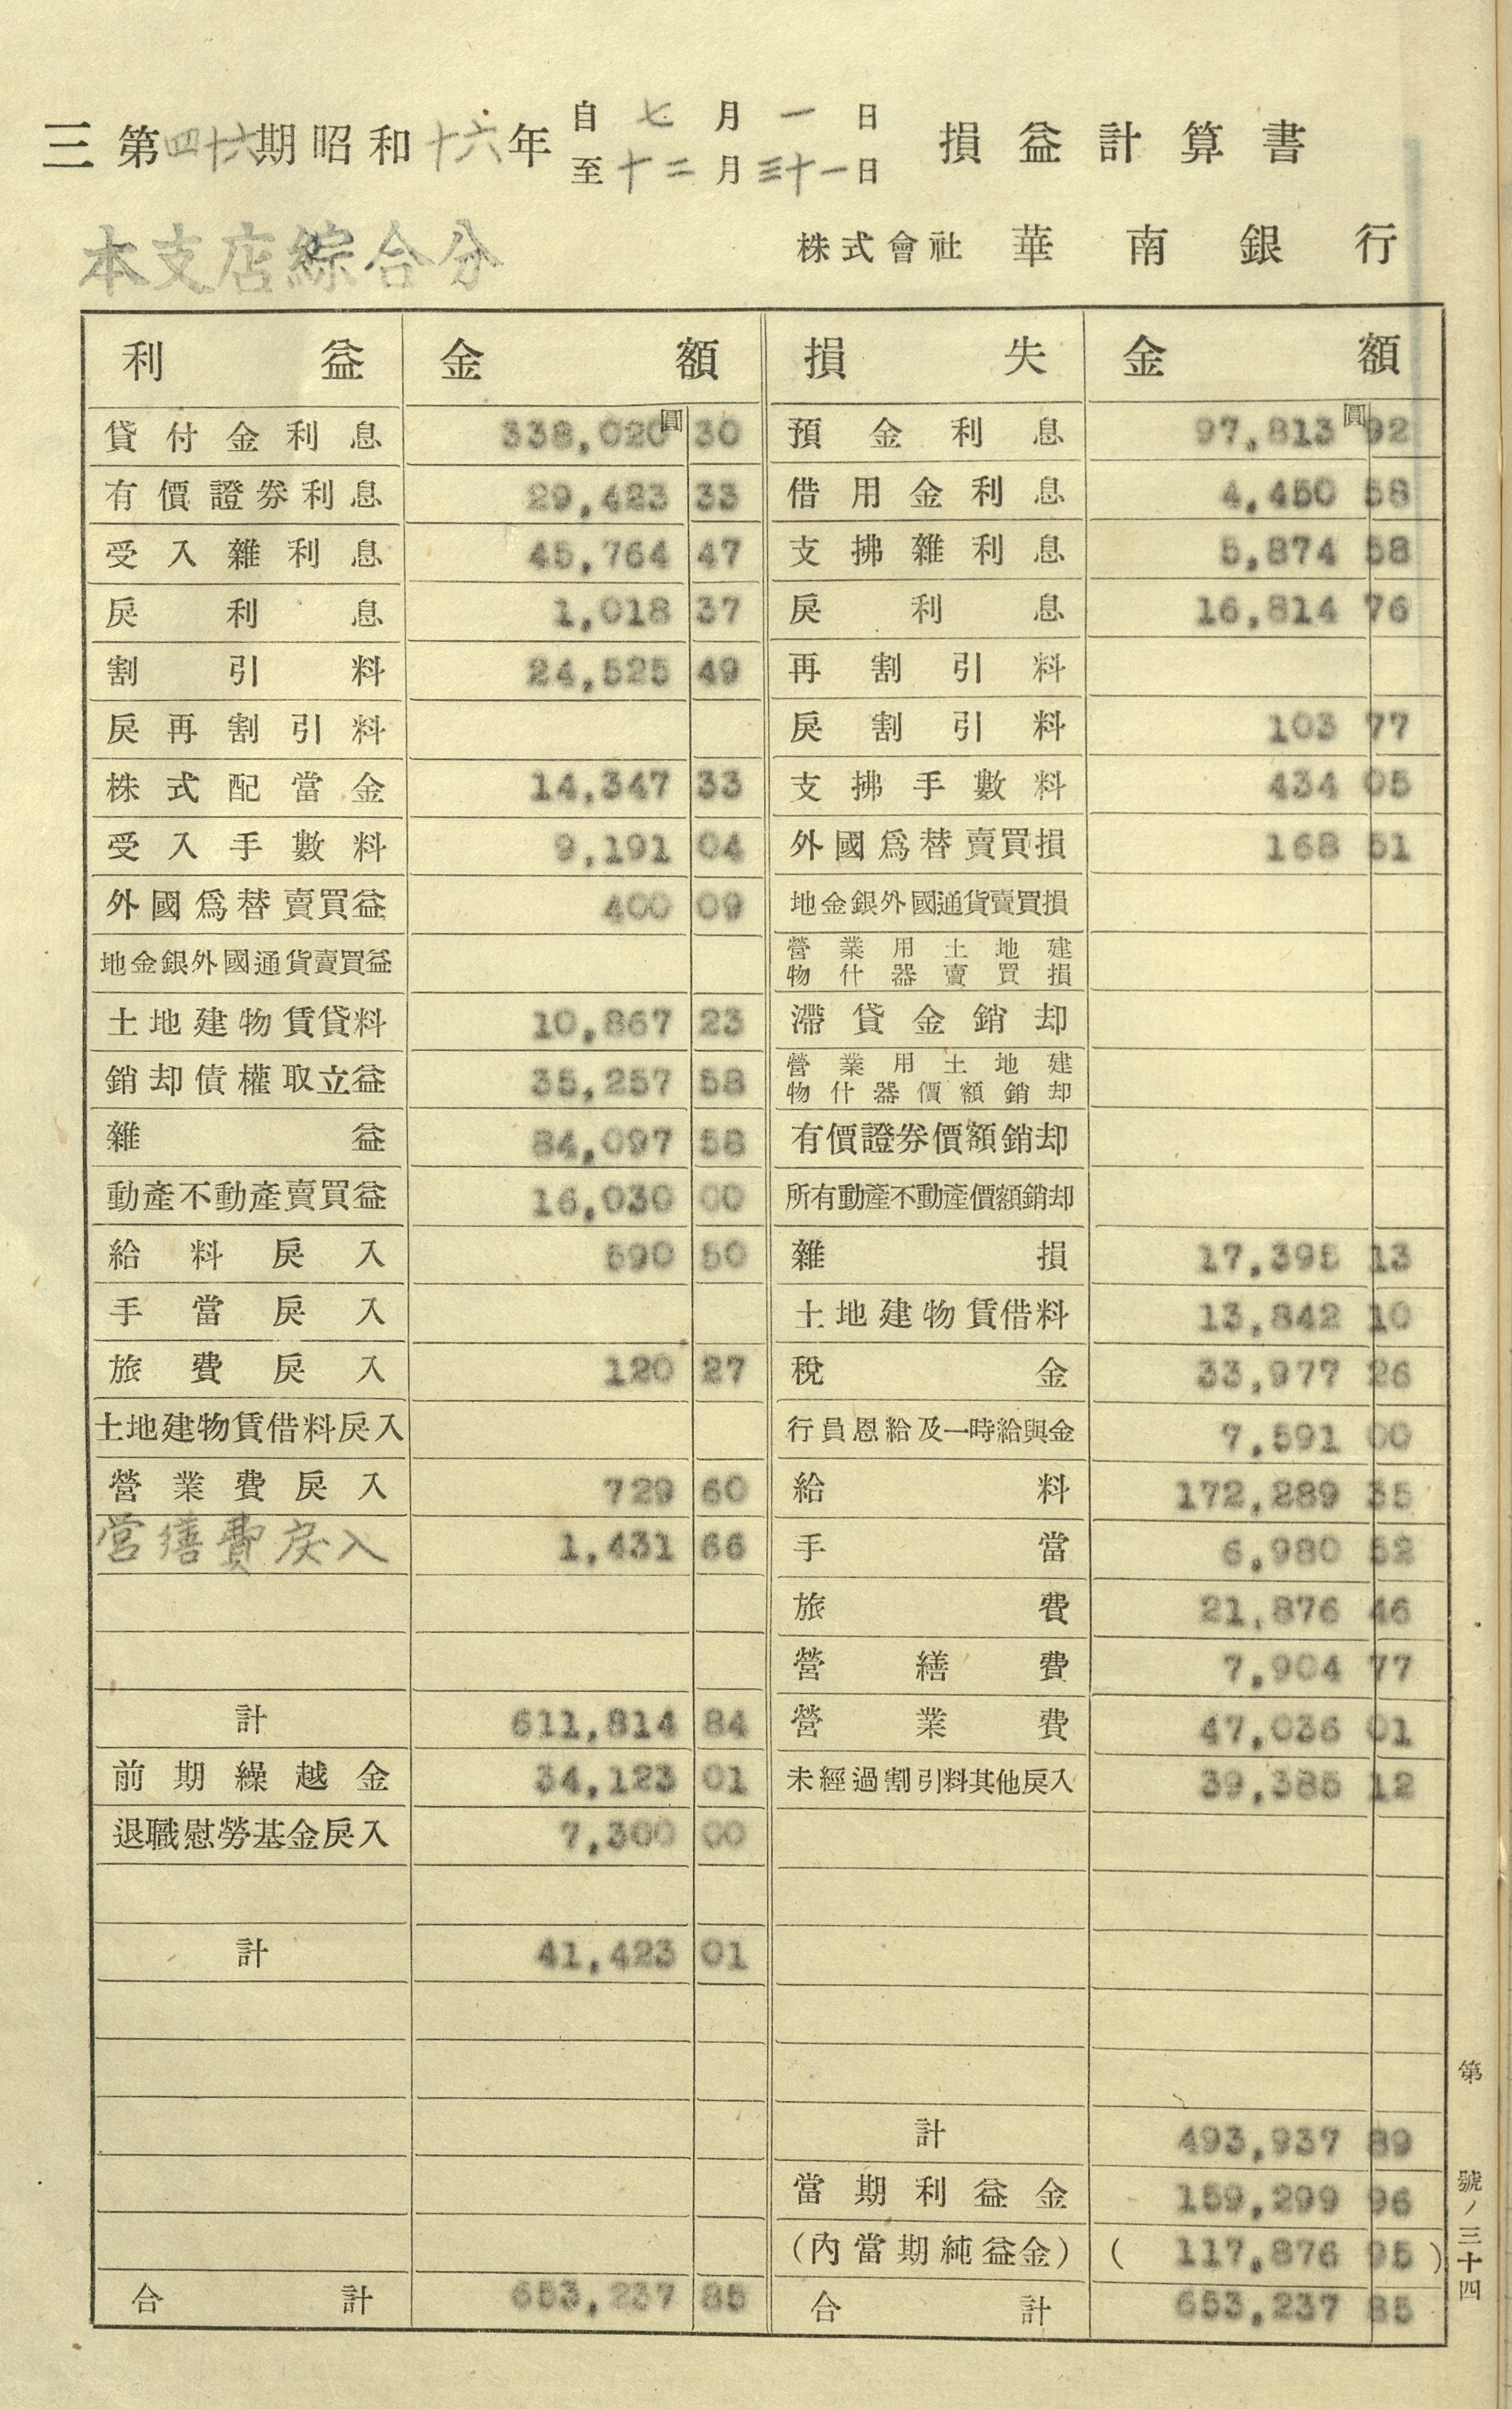 三 第四十六期昭和十六年 自七月一日 至十二月三十一日 損益計算書
本支店綜合分 株式會社 華南銀行
利益 金額 損失 金額
貸付金利息 338,020圓30 預金利息 97,813圓92
有價證券利息 29,423 33 借用金利息 4,450 58
受入雜利息 45,764 47 支拂雜利息 5,874 58
戾利息 1,018 37 戾利息 16,814 76
割引料 24,525 49 再割引料
戾再割引料 戾割引料 103 77
株式配當金 14,347 33 支拂手數料 434 05
受入手數料 9,191 04 外國爲替賣買損 168 51
外國爲替賣買益 400 09 地金銀外國通貨賣買損
地金銀外國通貨賣買益 營業用土地建物什器賣買損
土地建物賃貸料 10,867 23 滯貸金銷却
銷却債權取立益 35,257 58 營業用土地建物什器價額銷却
雜益 84,097 58 有價證券價額銷却
動產不動產賣買益 16,030 00 所有動產不動產價額銷却
給料戾入 590 50 雜損 17,395 13
手當戾入 土地建物賃借料 13,842 10
旅費戾入 120 27 稅金 33,977 26
土地建物賃借料戾入 行員恩給及一時給與金 7,591 00
營業費戾入 729 60 給料 172,289 35
営繕費戾入 1,431 66 手當 6,980 52
旅費 21,876 46
營繕費 7,904 77
計 611,814 84 營業費 47,036 01
前期繰越金 34,123 01 未經過割引料其他戾入 39,385 12
退職慰勞基金戾入 7,300 00
計 41,423 01
計 493,937 89
當期利益金 159,299 96
(內當期純益金) ( 117,876 95 )
合計 653,237 85 合計 653,237 85
第 號ノ三十四